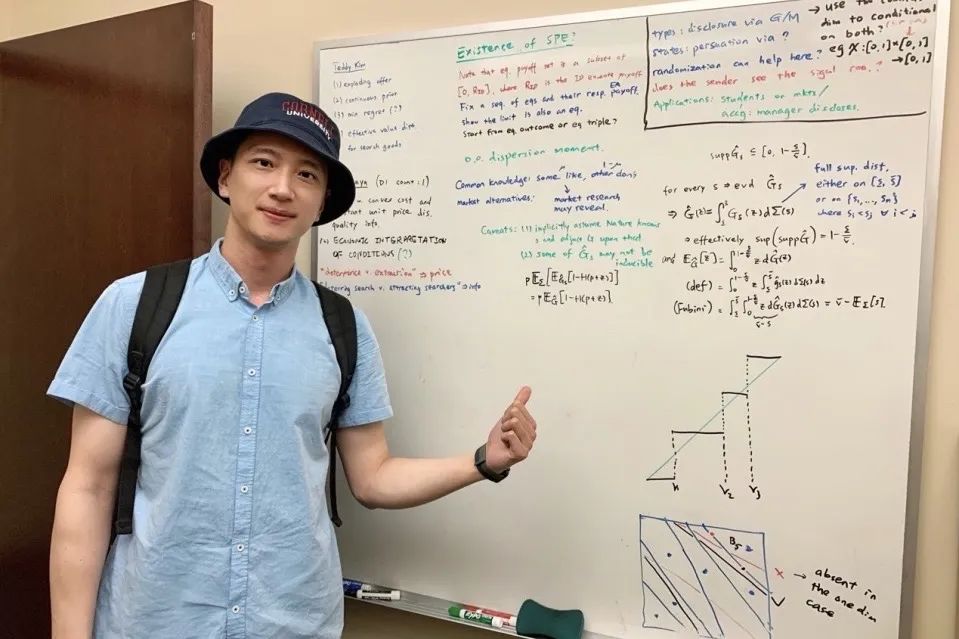 CORNELL
UNIVERSITY
Teddy Kim
(1) exploding offer
(2) continuous price
(3) min regret (?)
effective value dist.
for search goods
(DI count: 1)
convex cost and
unit price dis.
quality info.
ECONOMIC INTERPRETATION
OF CONDITIONS (?)
"deterrence v. extraction" ⇒ price
search v. attracting searchers" ⇒ info
Existence of SPE?
Note that eq. payoff set is a subset of
where is the payoff
Fix a seq. of eqs and their resp. EQ payoff.
Show the limit is also an eq.
Start from eq. outcome or eq triple?
o.o. dispersion moment.
Common knowledge: some like, other don't
μ 1-μ
market alternatives: market research
may reveal.
Caveats: (1) implicitly assume Nature knows
s and adjust is upon that
(2) some of Ĝs may not be
inducible
pE_Σ[E_Ĝs[1-H(p+z)]]
= pE_Ĝ[1-H(p+z)].
types: disclosure via G/M
states: persuation via ?
randomization can help here?
Does the sender see the signal rea..?
Applications: students or mkts/
accg: manager discloses.
→ use the
dim to conditional
on both?
eg X: [0,1]×[0,1]
→[0,1]
supp Ĝs ⊆ [0, 1-s/v̄].
for every s ⇒ evd Ĝs
full sup. dist,
either on [s̲, s̄]
or on {s₁,..., sₙ}
where sᵢ<sⱼ ∀ i<j.
⇒ effectively sup(supp Ĝ) = 1-
and
(def) =
(Fubini) = = v̄ - E_Σ[s].
V₂
V₃
B₅
X
→ absent in
the one dim
case